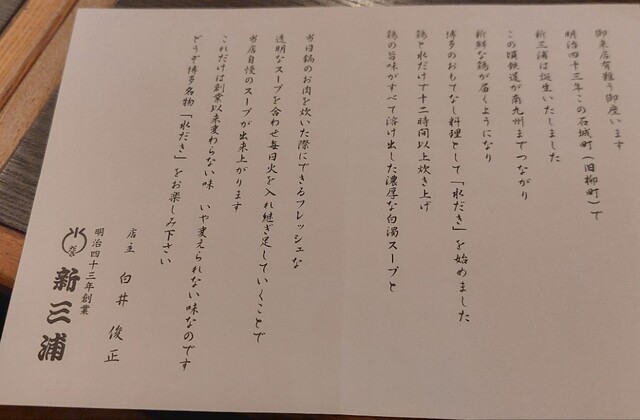 御来店有難う御座います
明治四十三年この石城町(旧柳町)で
新三浦は誕生いたしました
この頃鉄道が南九州までつながり
新鮮な鶏が届くようになり
博多のおもてなし料理として「水だき」を始めました
鶏と水だけで十二時間以上炊き上げ
鶏の旨味がすべて溶け出した濃厚な白濁スープと
当日鍋のお肉を炊いた際にできるフレッシュな
透明なスープを合わせ毎日火を入れ継ぎ足していくことで
当店自慢のスープが出来上がります
これだけは創業以来変わらない味 いや変えられない味なのです
どうぞ博多名物「水だき」をお楽しみ下さい
店主 白井 俊正
明治四十三年創業
新三浦